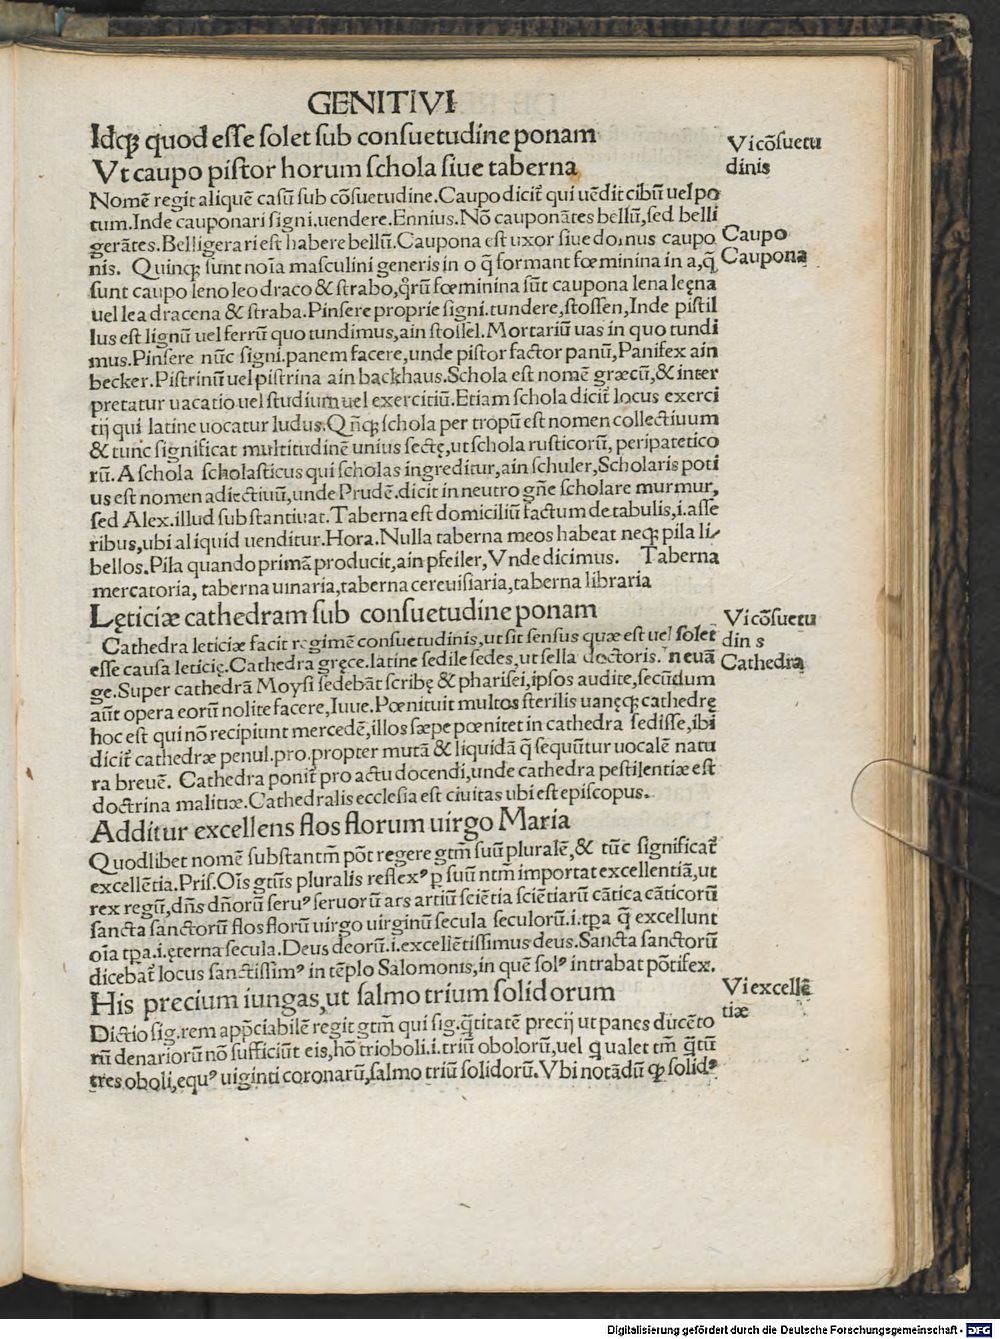 GENITIVI
Idqꝫ quod eſſe ſolet ſub conſuetudine ponam
Vt caupo piſtor horum ſchola ſiue taberna
Vi cōſuetu
dinis
Nomē regit aliquē caſū ſub cōſuetudine.Caupo dicit̄ qui uēdit cibū uel po
tum.Inde cauponari ſigni.uendere.Ennius.Nō cauponātes bellū,ſed belli
gerātes.Belligerari eſt habere bellū.Caupona eſt uxor ſiue domus caupo
Caupo
nis. Quinqꝫ ſunt noīa maſculini generis in o q̄ formant fœminina in a,q̄
Caupona
ſunt caupo leno leo draco & ſtrabo,qͦrū fœminina ſūt caupona lena leęna
uel lea dracena & ſtraba.Pinſere proprie ſigni.tundere,ſtoſſen,Inde piſtil
lus eſt lignū uel ferrū quo tundimus,ain ſtoſſel.Mortariū uas in quo tundi
mus.Pinſere nūc ſigni.panem facere,unde piſtor factor panū,Panifex ain
becker.Piſtrinū uel piſtrina ain backhaus.Schola eſt nomē græcū,& inter
pretatur uacatio uel ſtudium uel exercitiū.Etiam ſchola dicit̄ locus exerci
tij qui latine uocatur ludus.Qn̄qꝫ ſchola per tropū eſt nomen collectiuum
& tunc ſignificat multitudinē unius ſectę,ut ſchola ruſticorū, peripatetico
rū. A ſchola ſcholaſticus qui ſcholas ingreditur,ain ſchuler,Scholaris poti
us eſt nomen adiectiuū,unde Prudē.dicit in neutro gn̄e ſcholare murmur,
ſed Alex.illud ſubſtantiuat.Taberna eſt domiciliū factum de tabulis,i.aſſe
ribus,ubi aliquid uenditur.Hora.Nulla taberna meos habeat neqꝫ pila li⸗
bellos.Pila quando primā producit,ain pfeiler,Vnde dicimus. Taberna
mercatoria, taberna uinaria,taberna cereuiſiaria,taberna libraria
Lęticiæ cathedram ſub conſuetudine ponam
Vi cōſuetu
din s
Cathedra leticiæ facit regimē conſuetudinis,ut ſit ſenſus quæ eſt uel ſolet
eſſe cauſa leticię.Cathedra gręce.latine ſedile ſedes,ut ſella doctoris. In euā
Cathedra
ge.Super cathedrā Moyſi ſedebāt ſcribę & phariſei,ipſos audite,ſecūdum
aūt opera eorū nolite facere,Iuue.Pœnituit multos ſterilis uanęqꝫ cathedrę
hoc eſt qui nō recipiunt mercedē,illos ſæpe pœnitet in cathedra ſediſſe,ibi
dicit̄ cathedræ penul.pro.propter mutā & liquidā q̄ ſequūtur uocalē natu
ra breuē. Cathedra ponit̄ pro actu docendi,unde cathedra peſtilentiæ eſt
doctrina malitiæ.Cathedralis eccleſia eſt ciuitas ubi eſt epiſcopus.
Additur excellens flos florum uirgo Maria
Quodlibet nomē ſubſtantm̄ pōt regere gtm̄ ſuū pluralē,& tūc ſignificat̄
excellētia.Priſ.Oīs gtūs pluralis reflexꝰ p ſuū ntm̄ importat excellentiā,ut
rex regū,dn̄s dn̄orū ſeruꝰ ſeruorū ars artiū ſciētia ſciētiarū cātica cāticorū
ſancta ſanctorū flos florū uirgo uirginū ſecula ſeculorū.i.tp̄a q̄ excellunt
oīa tp̄a.i.ęterna ſecula.Deus deorū.i.excellētiſſimus deus.Sancta ſanctorū
dicebat̄ locus ſanctiſſimꝰ in tēplo Salomonis,in quē ſolꝰ intrabat pōtifex.
His precium iungas,ut ſalmo trium ſolidorum
Vi excellē
tiæ
Dictio ſig.rem app̄ciabilē regit gtm̄ qui ſig.q̄titatē precij ut panes ducēto
rū denariorū nō ſufficiūt eis,hō trioboli.i.triū obolorū,uel q ualet tm̄ q̄tū
tres oboli,equꝰ uiginti coronarū,ſalmo triū ſolidorū.Vbi notādū ꝙ ſolidꝰ
Digitalisierung gefördert durch die Deutsche Forschungsgemeinschaft - DFG